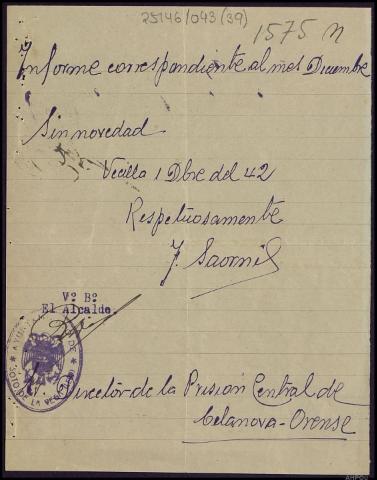 25146/043(39)
1575 n
Informe correspondiente al mes Diciembre
Sin novedad
Vecilla 1 Dbre del 42
Respetuosamente
J. Saornil
Vº Bº
El Alcalde.
Director de la Prision Central de
Celanova-Orense
AHPOU